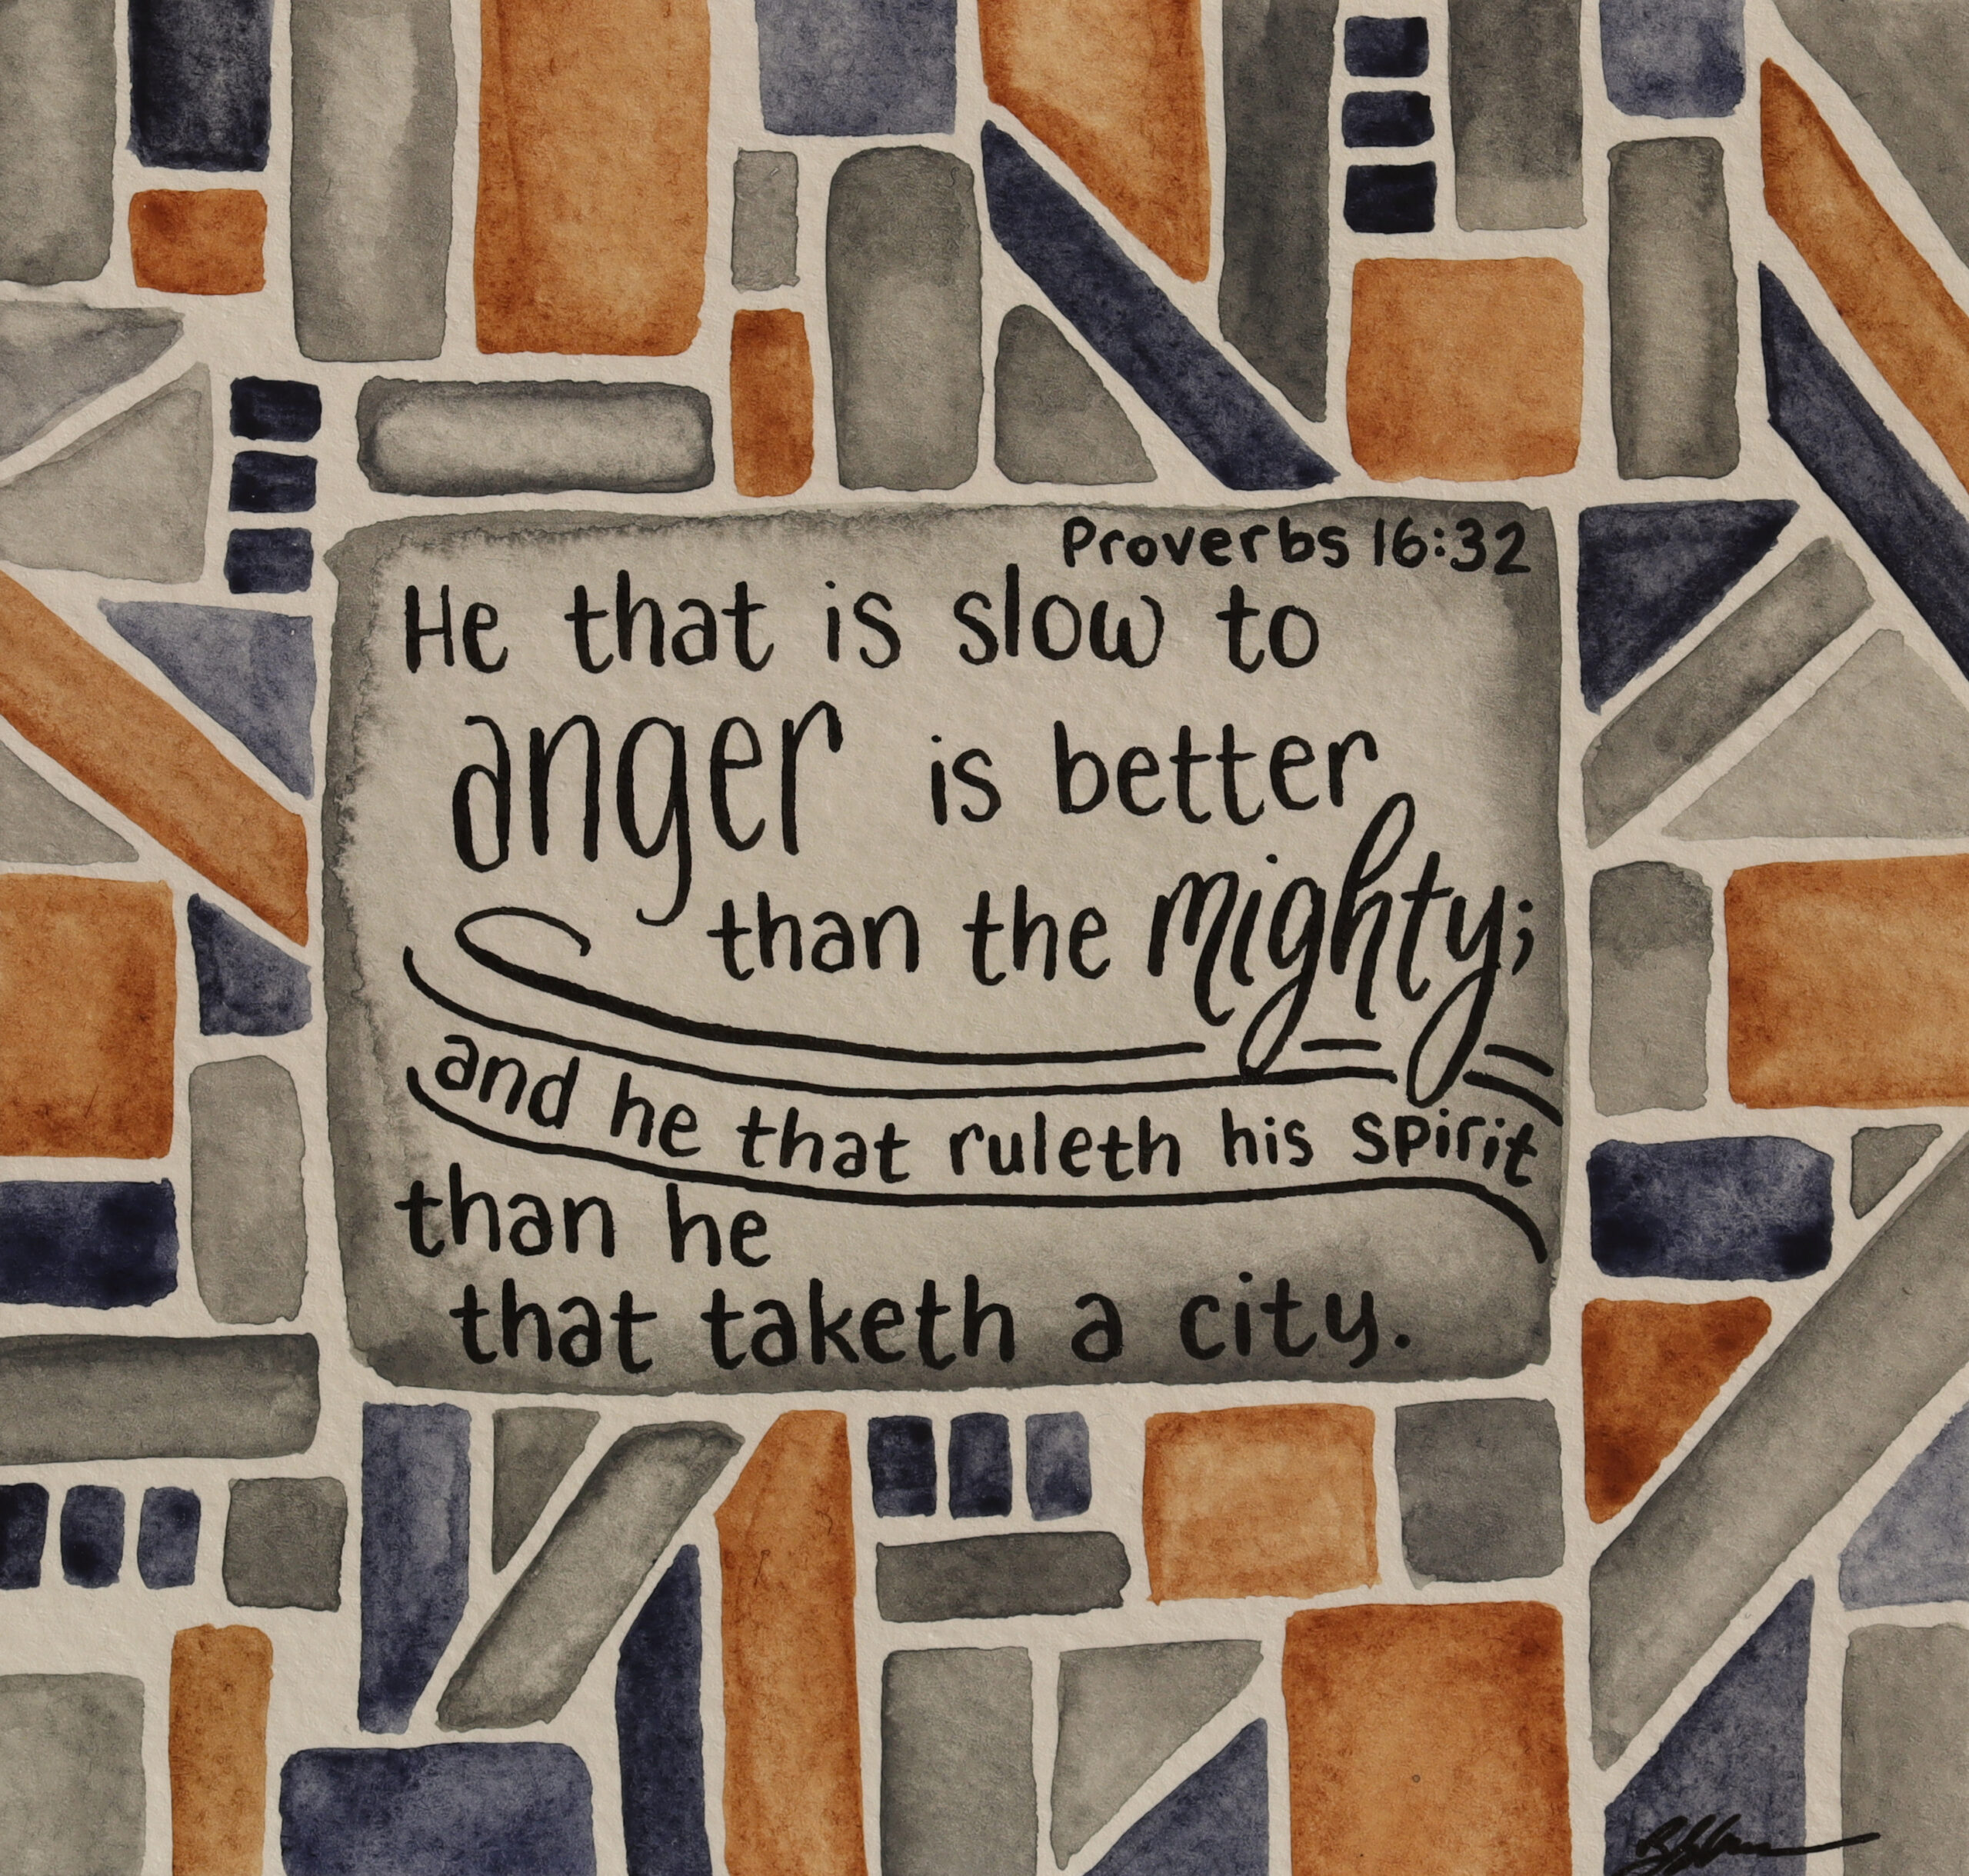 Proverbs 16:32
He that is slow to
anger is better
than the mighty;
and he that ruleth his spirit
than he
that taketh a city.